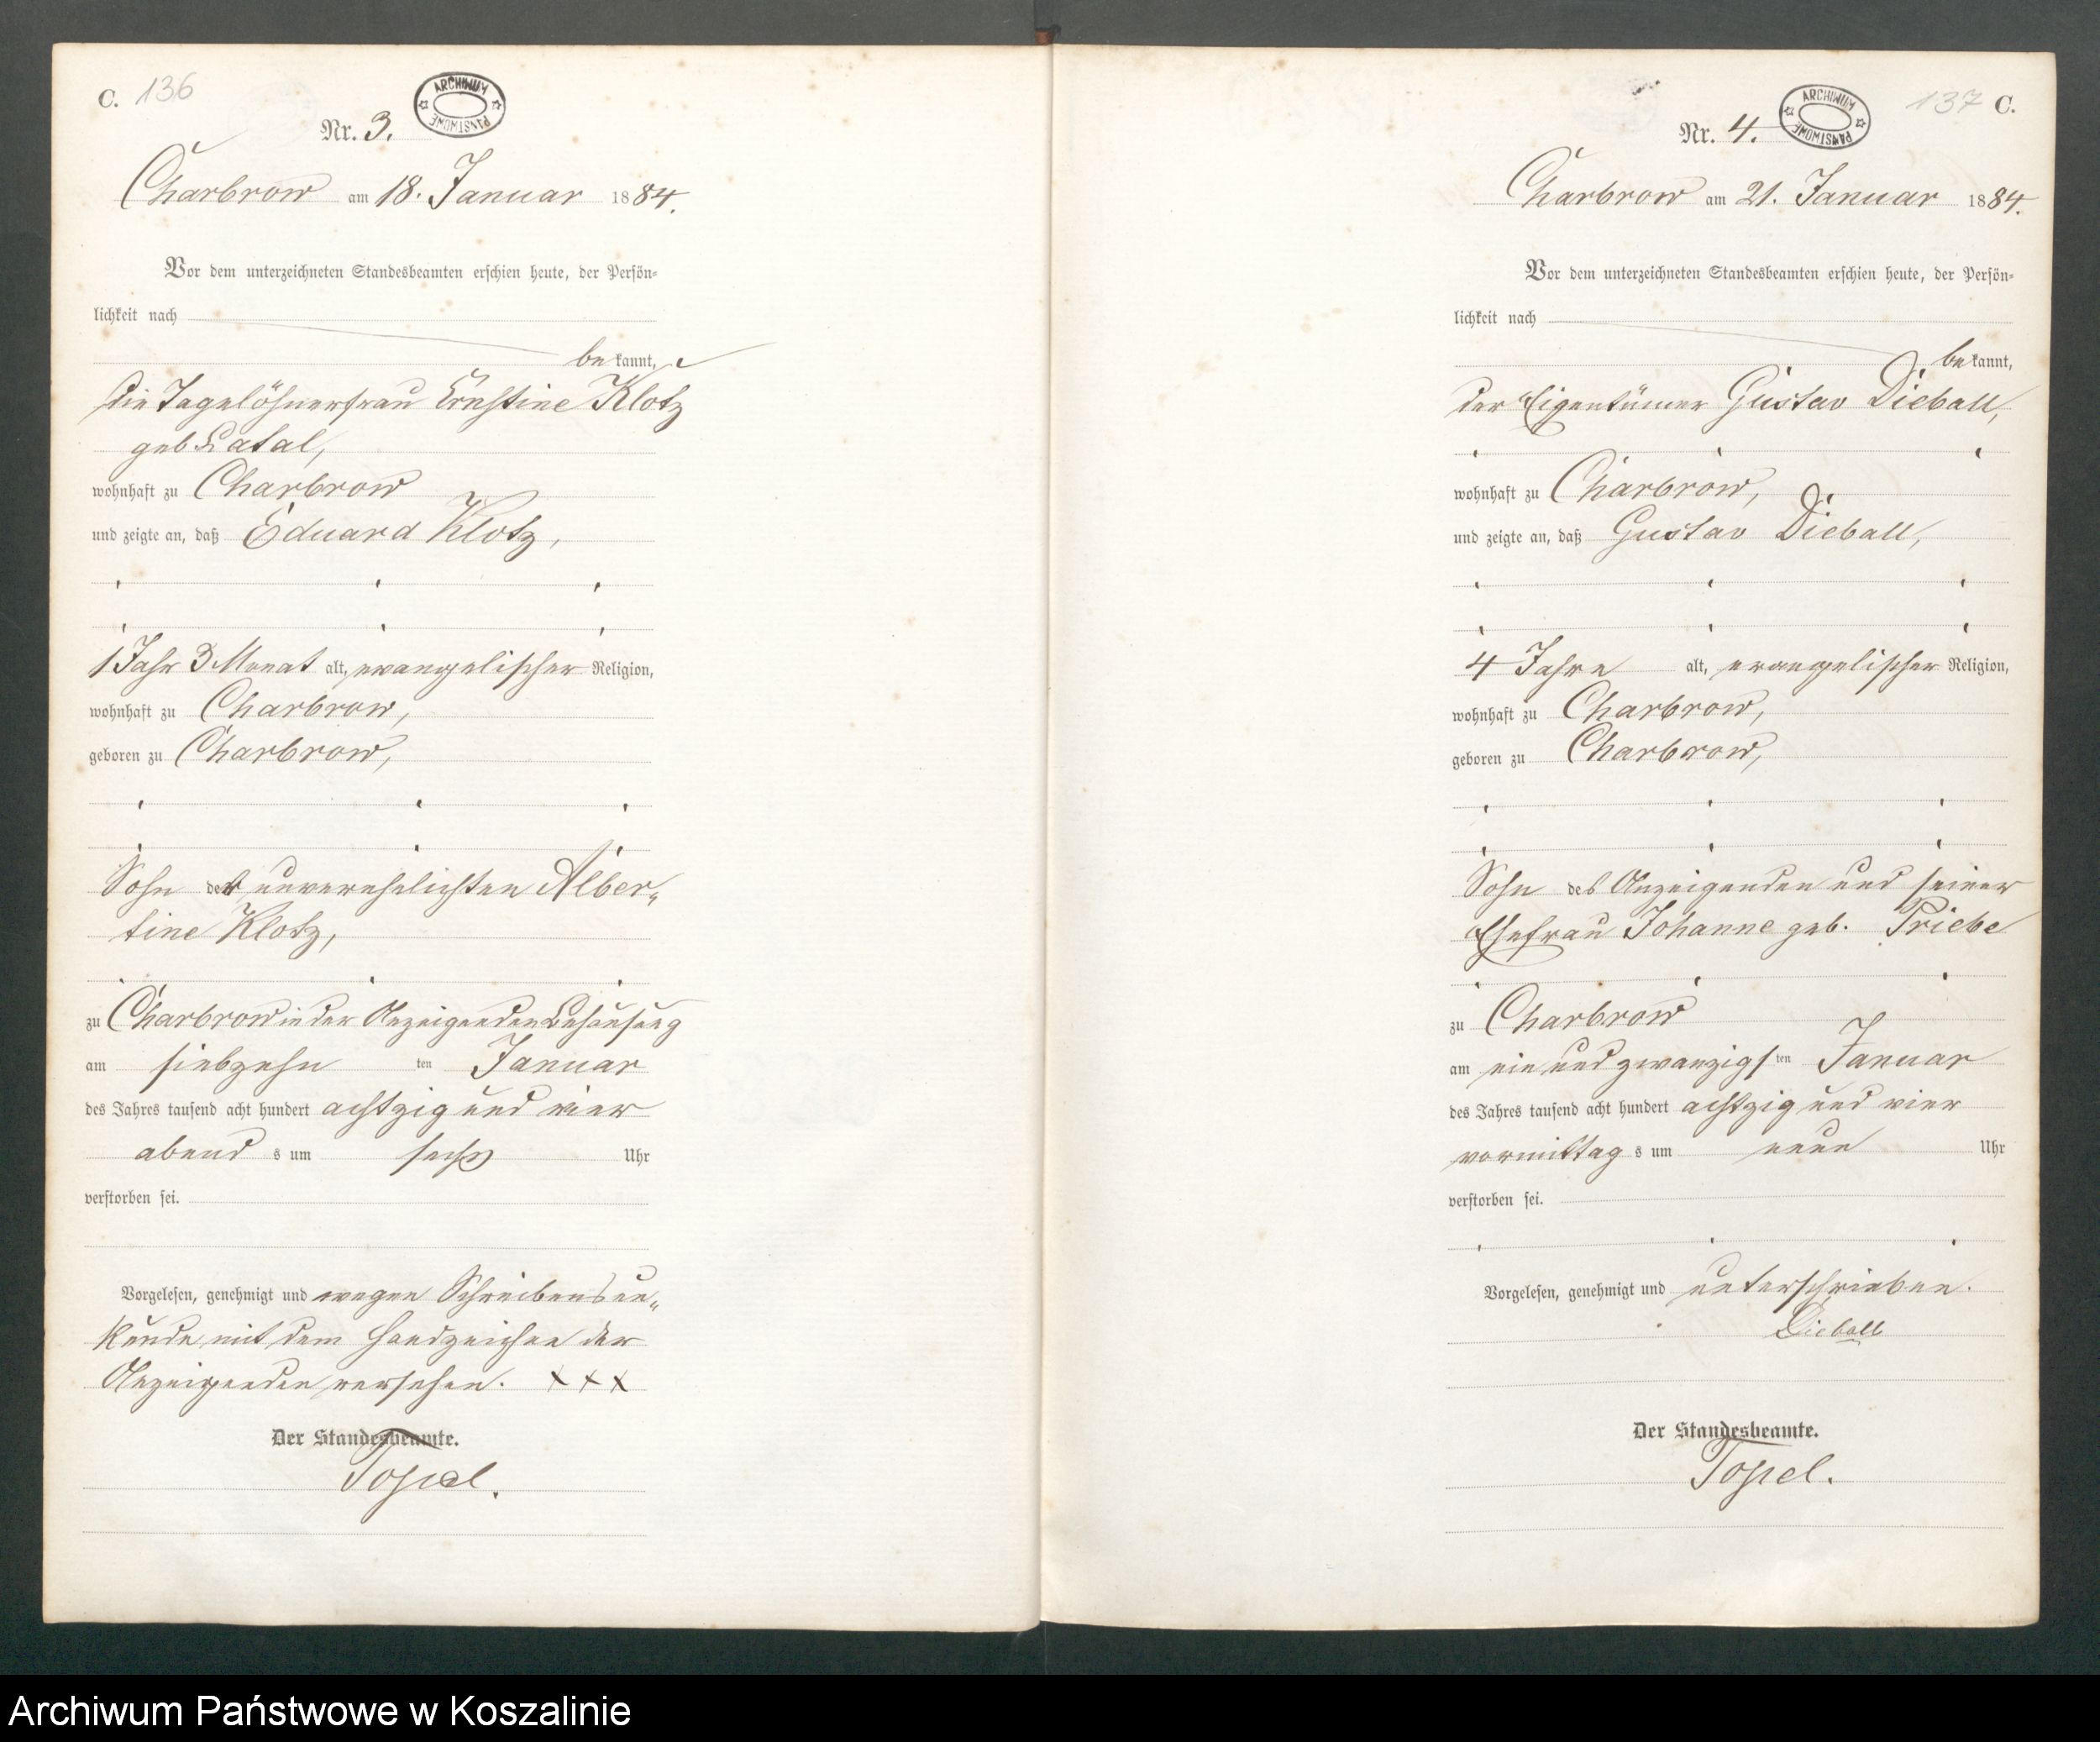 C. 136
ARCHIWUM PAŃSTWOWE
Nr. 3.
Charbrow am 18. Januar 1884.
Vor dem unterzeichneten Standesbeamten erschien heute, der Persön=
lichkeit nach
bekannt,
die Tagelöhnerfrau Ernstine Klotz
geb.
wohnhaft zu Charbrow
und zeigte an, daß Eduard Klotz,
1 Jahr 3 Monat alt, evangelischer Religion,
wohnhaft zu Charbrow,
geboren zu Charbrow,
Sohn der unverehelichten Alber„
tine Klotz,
zu Charbrow in der Anzeigenden Behausung
am siebzehn ten Januar
des Jahres tausend acht hundert achtzig und vier
abend s um sechs Uhr
verstorben sei.
Vorgelesen, genehmigt und wegen Schreibensun„
kunde mit dem Handzeichen der
Anzeigenden versehen. XXX
Der Standesbeamte.
Topel.
137 C.
ARCHIWUM PAŃSTWOWE
Nr. 4.
Charbrow am 21. Januar 1884.
Vor dem unterzeichneten Standesbeamten erschien heute, der Persön=
lichkeit nach
bekannt,
der Eigentümer Gustav Dieball,
wohnhaft zu Charbrow,
und zeigte an, daß Gustav Dieball,
4 Jahre alt, evangelischer Religion,
wohnhaft zu Charbrow,
geboren zu Charbrow,
Sohn des Anzeigenden und seiner
Ehefrau Johanne geb. Priebe
zu Charbrow
am ein und zwanzigsten Januar
des Jahres tausend acht hundert achtzig und vier
vormittag s um neun Uhr
verstorben sei.
Vorgelesen, genehmigt und unterschrieben.
Dieball
Der Standesbeamte.
Topel.
Archiwum Państwowe w Koszalinie